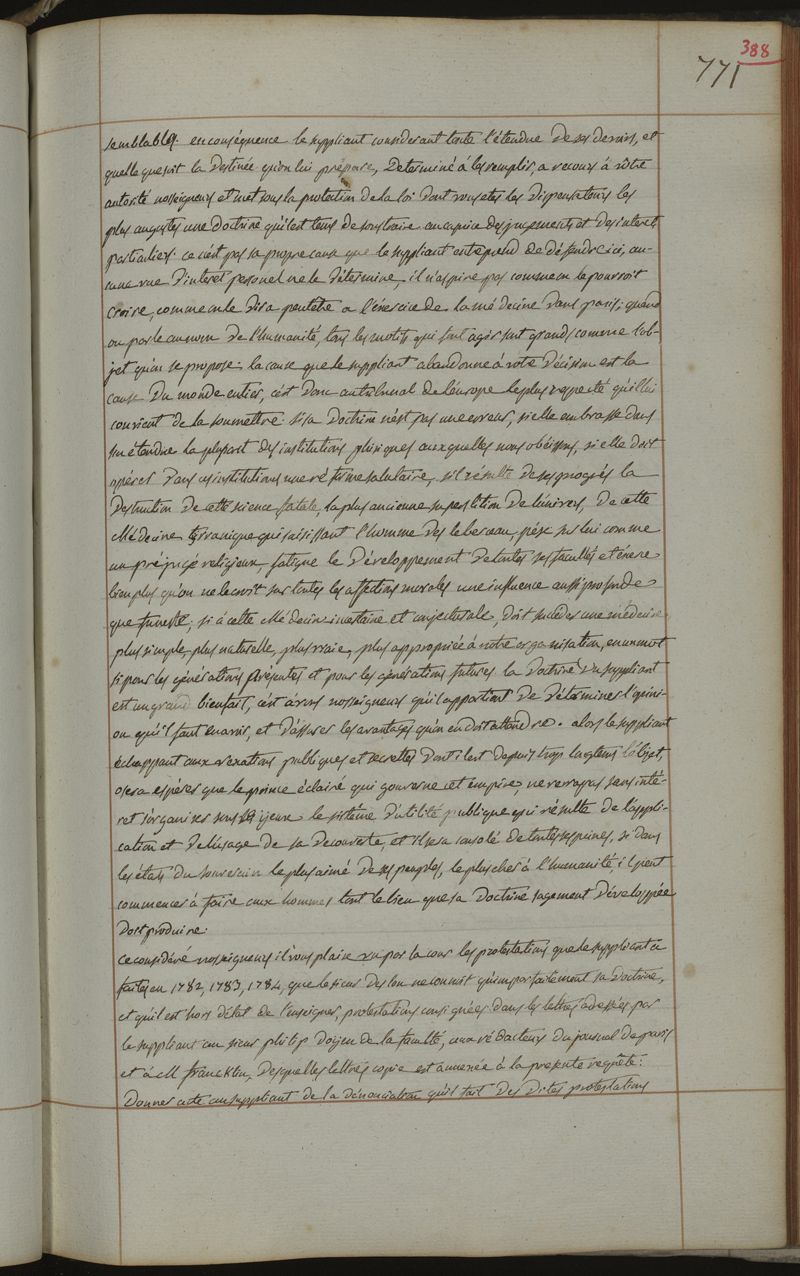 388
771
semblables. en conséquence le suppliant considerant toute l'étendue de ses devoirs, et
quelle que soit la Destinée qu'on lui prépare, Determiné à les remplir, a recours à vôtre
autorité nosseigneurs et met sous la protection de la loi dont vous etes les Dispensateurs les
plus augustes une Doctrine qu'il est tems de soustraire au caprice des jugements et des interets
particuliers. ce n'est pas sa propre cause que le suppliant entreprend de défendre ici, au-
cune vue d'interet personel ne le Détermine, il n'aspire pas comme on le pourroit
croire, comme on le Dira peutêtre a l'éxercice de la médecine dans paris; quand
on parle au nom de l'humanité, tous les motifs qui font agir sont grands comme l'ob-
jet qu'on se propose. la cause que le suppliant abandonne à votre Décision est la
cause Du monde entier, c'est Donc au tribunal de l'europe le plus respecté qu'il lui
convient de la soumettre. si sa Doctrine n'est pas une erreur, si elle embrasse dans
son étendue la plupart des institutions phisiques auxquelles nous obéissons, si elle doit
opérer Dans ces institutions une réforme salutaire, s'il résulte de ses progrès la
Destruction de cette science fatale, la plus ancienne superstition de l'univers, De cette
Médecine tyrannique qui saisissant l'homme des le berceau, pèse sur lui comme
un préjugé religieux, fatigue le Développement De toutes ses facultés et éxerce
bien plus qu'on ne le croit sur toutes les affections morales une influence aussi profonde
que funeste; si à cette Médecine incertaine et conjecturale, doit succéder une médecine
plus simple, plus naturelle, plus vraie, plus appropriée à notre organisation, en un mot
si pour les générations présentes et pour les générations futures la Doctrine du suppliant
est un grand bienfait, c'est à vous nosseigneurs qu'il appartient De Déterminer l'opini-
on qu'il faut en avoir, et d'assurer les avantages qu'on en doit attendre. alors le suppliant
échappant aux vexations publiques et secrettes dont il est depuis trop longtems l'objet,
osera espérer que le prince éclairé qui gouverne cet empire ne verra pas sans inté-
ret s'organiser sous ses yeux le sistème d'utilité publique qui résulte de l'appli-
cation et de l'usage de sa Decouverte, et il sera consolé de toutes ses peines, si dans
les états du souverain le plus aimé de ses peuples, le plus cher à l'humanité, il peut
commencer à faire aux hommes tout le bien que sa Doctrine sagement Développée
Doit produire.
ce considéré nosseigneurs il vous plaise vu par la cour les protestations que le suppliant a
faites en 1782, 1783, 1784, que le sieur Deslon ne connoit qu'imparfaitement sa Doctrine,
et qu'il est hors d'état de l'enseigner, protestations consignées dans les lettres adressées par
le suppliant au sieur philip doijen de la faculté, aux rédacteurs du journal de paris
et à M francklin, Desquelles lettres copie est annexée à la presente requête:
Donner acte au suppliant de la dénonciation qu'il fait Des Dites protestations